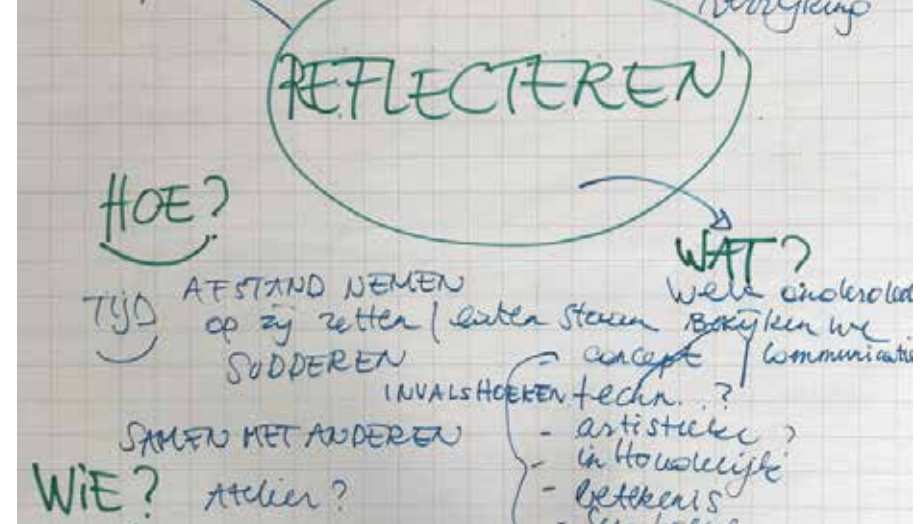 REFLECTEREN
HOE?
TIJD
AFSTAND NEMEN
op zij zetten / laten staan
SUDDEREN
SAMEN MET ANDEREN
WIE? Atelier?
WAT?
Welk
Bekijken we
- concept
communicatie
INVALSHOEKEN techn. ?
- artistieke ?
- inhoudelijke
- betekenis